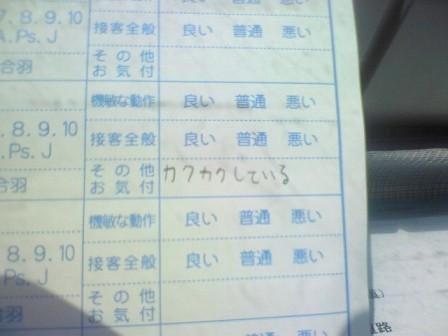 7. 8. 9. 10
A. Ps. J 接客全般 良い 普通 悪い
合羽 その他お気付
機敏な動作 良い 普通 悪い
. 8. 9. 10 接客全般 良い 普通 悪い
. Ps. J
合羽 その他お気付 カクカクしている
機敏な動作 良い 普通 悪い
8. 9. 10 接客全般 良い 普通 悪い
Ps. J
合羽 その他お気付
普通 悪い